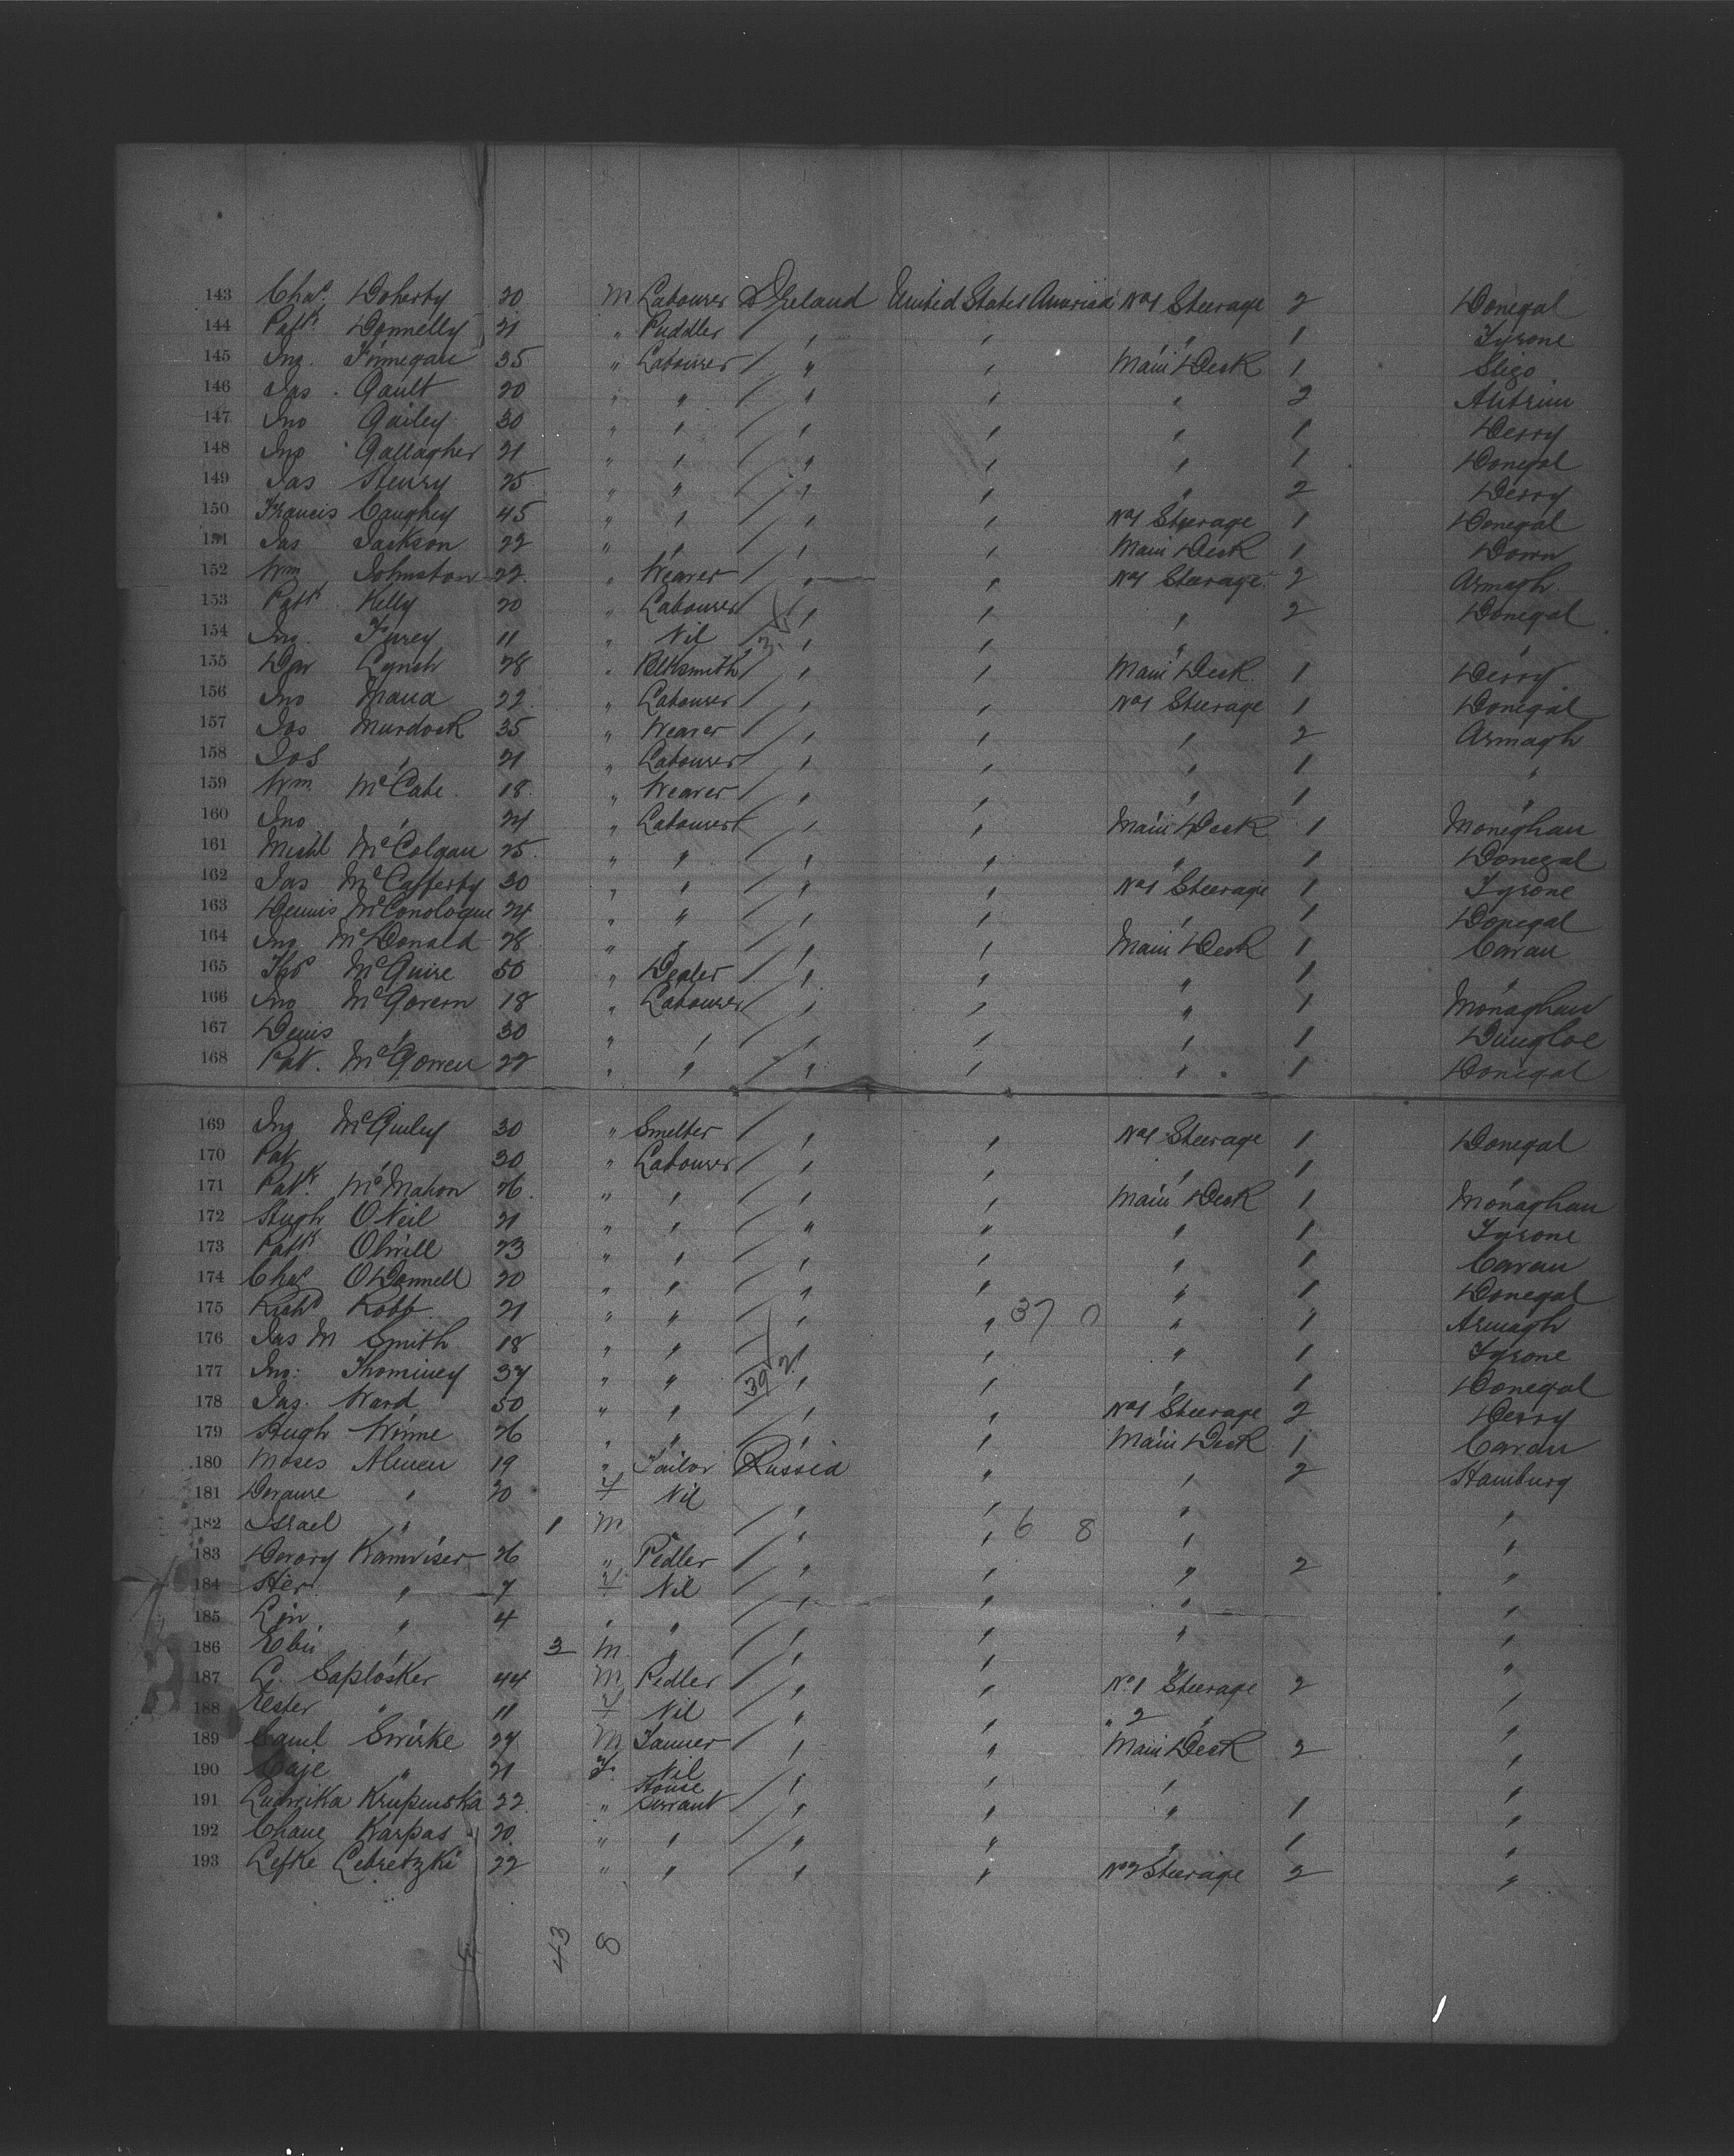 143 Chas. Doherty 20 M Labourer Ireland United States America No1 Steerage 2 Donegal
144 Patk Donnelly 21 " Puddler " " " 1 Tyrone
145 Jno. Finnegan 35 " Labourer " " Main Deck 1 Sligo
146 Jas. Gault 20 " " " " " 2 Antrim
147 Jno Gailey 30 " " " " " 1 Derry
148 Jno Gallagher 21 " " " " " 1 Donegal
149 Jas Henry 25 " " " " " 2 Derry
150 Francis Caughey 45 " " " " No1 Steerage 1 Donegal
151 Jas Jackson 22 " " " " Main Deck 1 Down
152 Wm Johnston 22 " Weaver " " No1 Steerage 2 Armagh
153 Patk Kelly 20 " Labourer " " " 2 Donegal
154 Jno. Furey 11 " Nil " " " "
155 Dan Lynch 28 " Blksmith " " Main Deck 1 Derry
156 Jno Mana 22 " Labourer " " No1 Steerage 1 Donegal
157 Jos Murdock 35 " Weaver " " " 2 Armagh
158 Jos " 21 " Labourer " " " 1 "
159 Wm McCabe 18 " Weaver " " " 1 "
160 Jno " 24 " Labourer " " Main Deck 1 Moneghan
161 Michl McColgan 25 " " " " " 1 Donegal
162 Jas McCafferty 30 " " " " No1 Steerage 1 Tyrone
163 Dennis McConologue 24 " " " " " 1 Donegal
164 Jno McDonald 28 " " " " Main Deck 1 Cavan
165 Thos McGuire 50 " Dealer " " " 1 "
166 Jno McGovern 18 " Labourer " " " 1 Monaghan
167 Denis " 30 " " " " " 1 Dungloe
168 Pat. McGowen 22 " " " " " 1 Donegal
169 Jno McGinley 30 " Smelter " " No1 Steerage 1 Donegal
170 Pat " 30 " Labourer " " " 1 "
171 Patk. McMahon 26 " " " " Main Deck 1 Monaghan
172 Hugh O'Neil 21 " " " " " 1 Tyrone
173 Patk Olwill 23 " " " " " 1 Cavan
174 Chas O'Donnell 20 " " " " " 1 Donegal
175 Richd Robb 21 " " " " 37 0 " 1 Armagh
176 Jas M Smith 18 " " " " " 1 Tyrone
177 Jno. Thominey 37 " " 39 2 " " " 1 Donegal
178 Jas. Ward 50 " " " " No1 Steerage 2 Derry
179 Hugh Winne 26 " " " " Main Deck 1 Cavan
180 Moses 19 " Tailor Russia " " 2 Hamburg
181 " 20 F Nil " " " "
182 Israel " 1 M " " " 6 8 " "
183 Kamviser 26 " Pedler " " " 2 "
184 " 7 F Nil " " " "
185 " 4 " " " " " "
186 " 3 M " " " " "
187 Saplosker 44 M Pedler " " No1 Steerage 2 "
188 Ester " 11 F Nil " " " 2 " "
189 Saml Swirke 27 M Tanner " " Main Deck 2 "
190 " 21 F Nil " " " "
191 Ludwika Krupenska 22 " House Servant " " " 1 "
192 Chane Karpas 20 " " " " " 1 "
193 Lefke Lebretzki 22 " " " " No2 Steerage 2 "
43 8